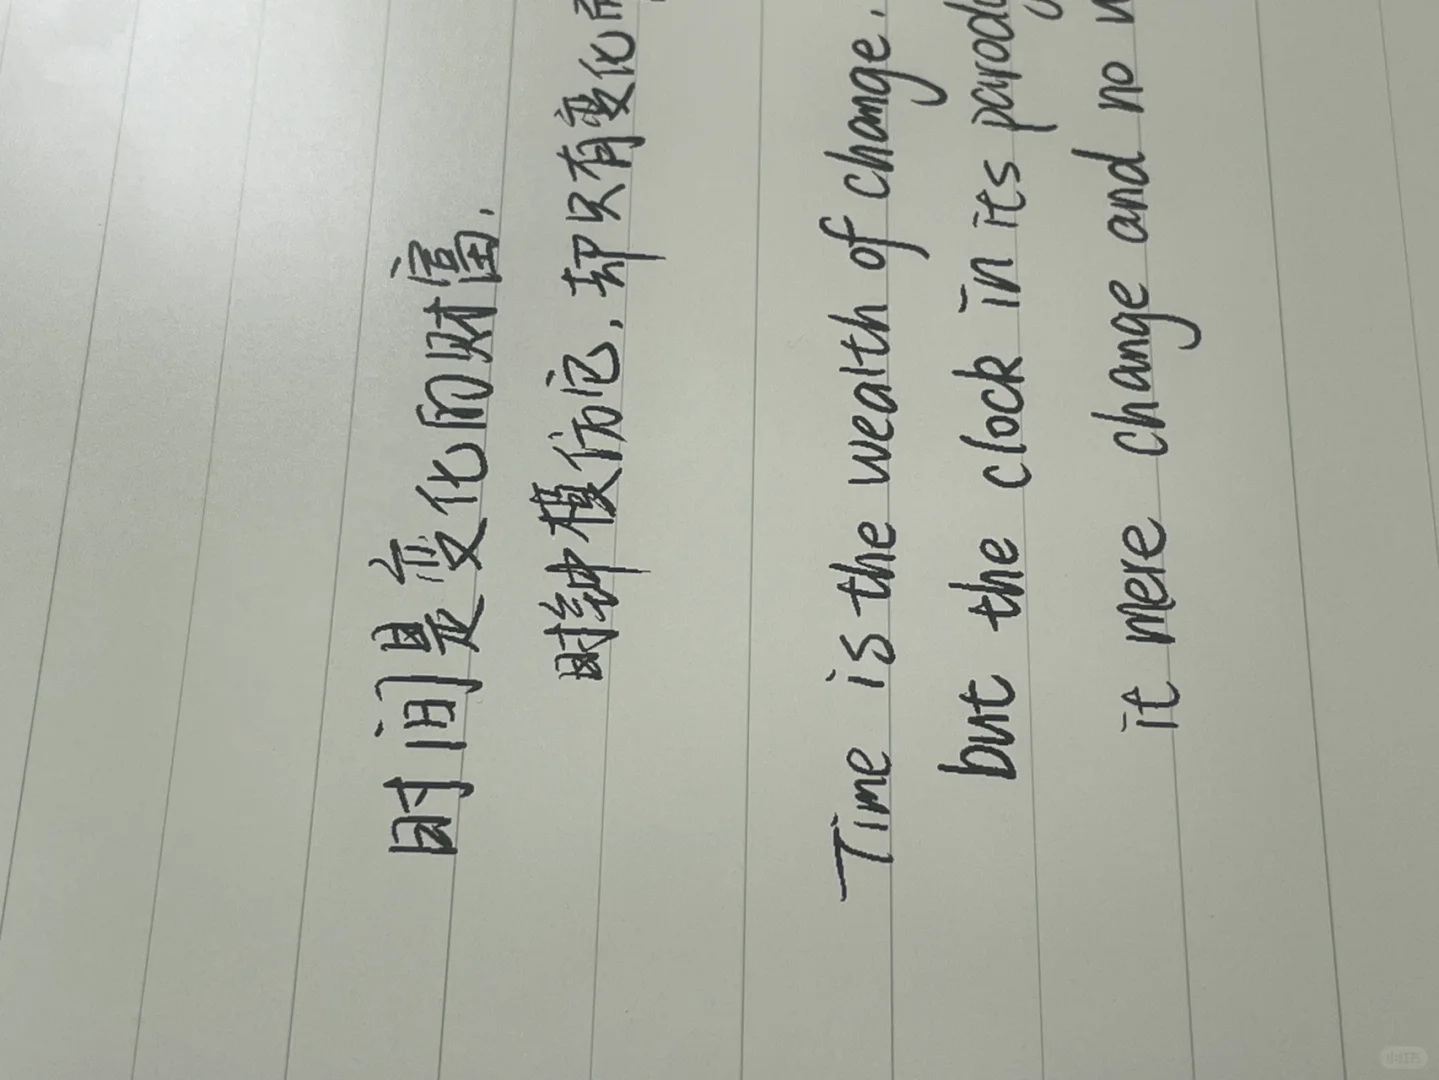 时间是变化的财富，
时钟模仿它，却只有变化而
Time is the wealth of change,
but the clock in its parody
it mere change and no